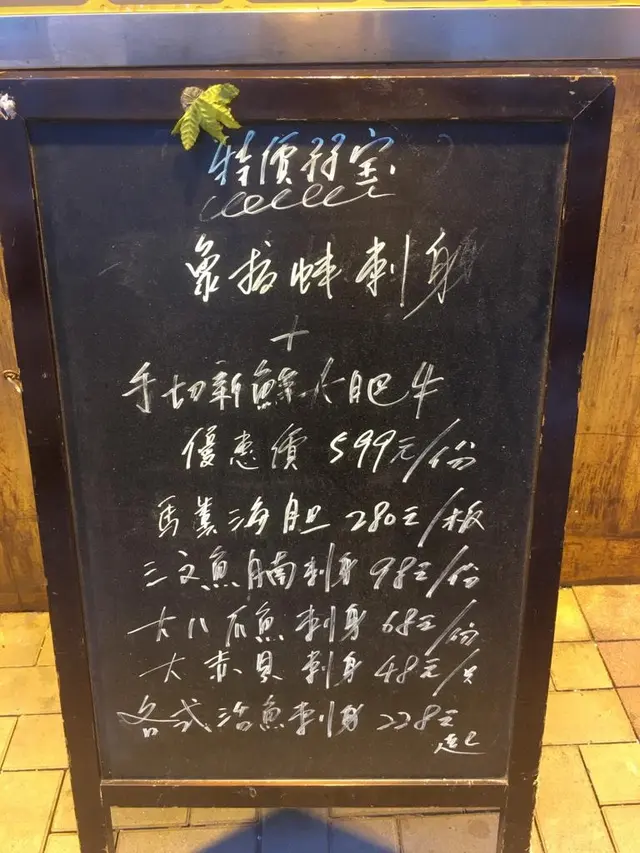 特價
象拔蚌刺身
+
手切新鮮大肥牛
優惠價 599元/份
馬糞海胆 280元/板
三文魚腩刺身 98元/份
大八爪魚刺身 68元/份
大赤貝刺身 48元/只
各式活魚刺身 228元
起